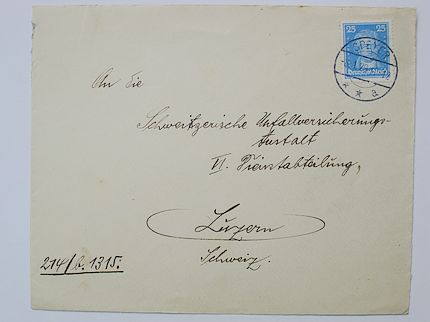 25 25
Deutsches Reich
a
An die
Schweizerische Unfallversicherungs-
Anstalt
VI. Dienstabteilung,
Luzern
Schweiz.
214/k. 1315.